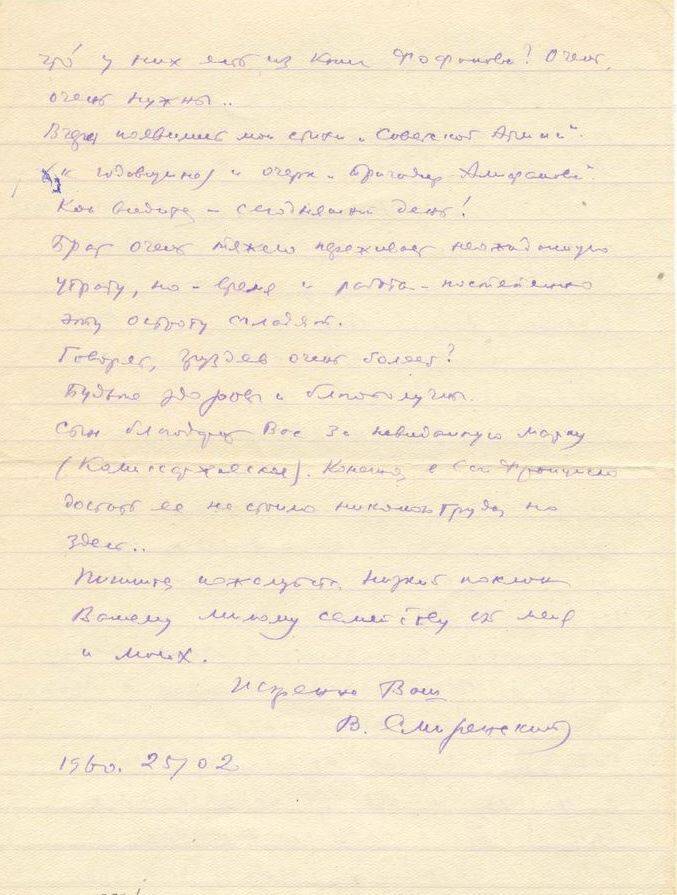 что у них есть из книг Фофанова? Очень,
очень нужны..
Вчера появились мои стихи „Советской Армии"
(к годовщине) и очерк „Бригадир".
Как видите – сегодняшний день!
Брат очень тяжело переживает неожиданную
утрату, но – время и работа – постепенно
эту остроту сгладят.
Говорят, Груздев очень болеет?
Будьте здоровы и благополучны.
Сын благодарит Вас за невиданную марку
(Комиссаржевская). Конечно, в
достать ее не стоило никакого труда, но
здесь..
Пишите, пожалуйста. Низкий поклон
Вашему милому семейству от меня
и моих.
Искренно Ваш
В. Смиренский
1960. 25/02